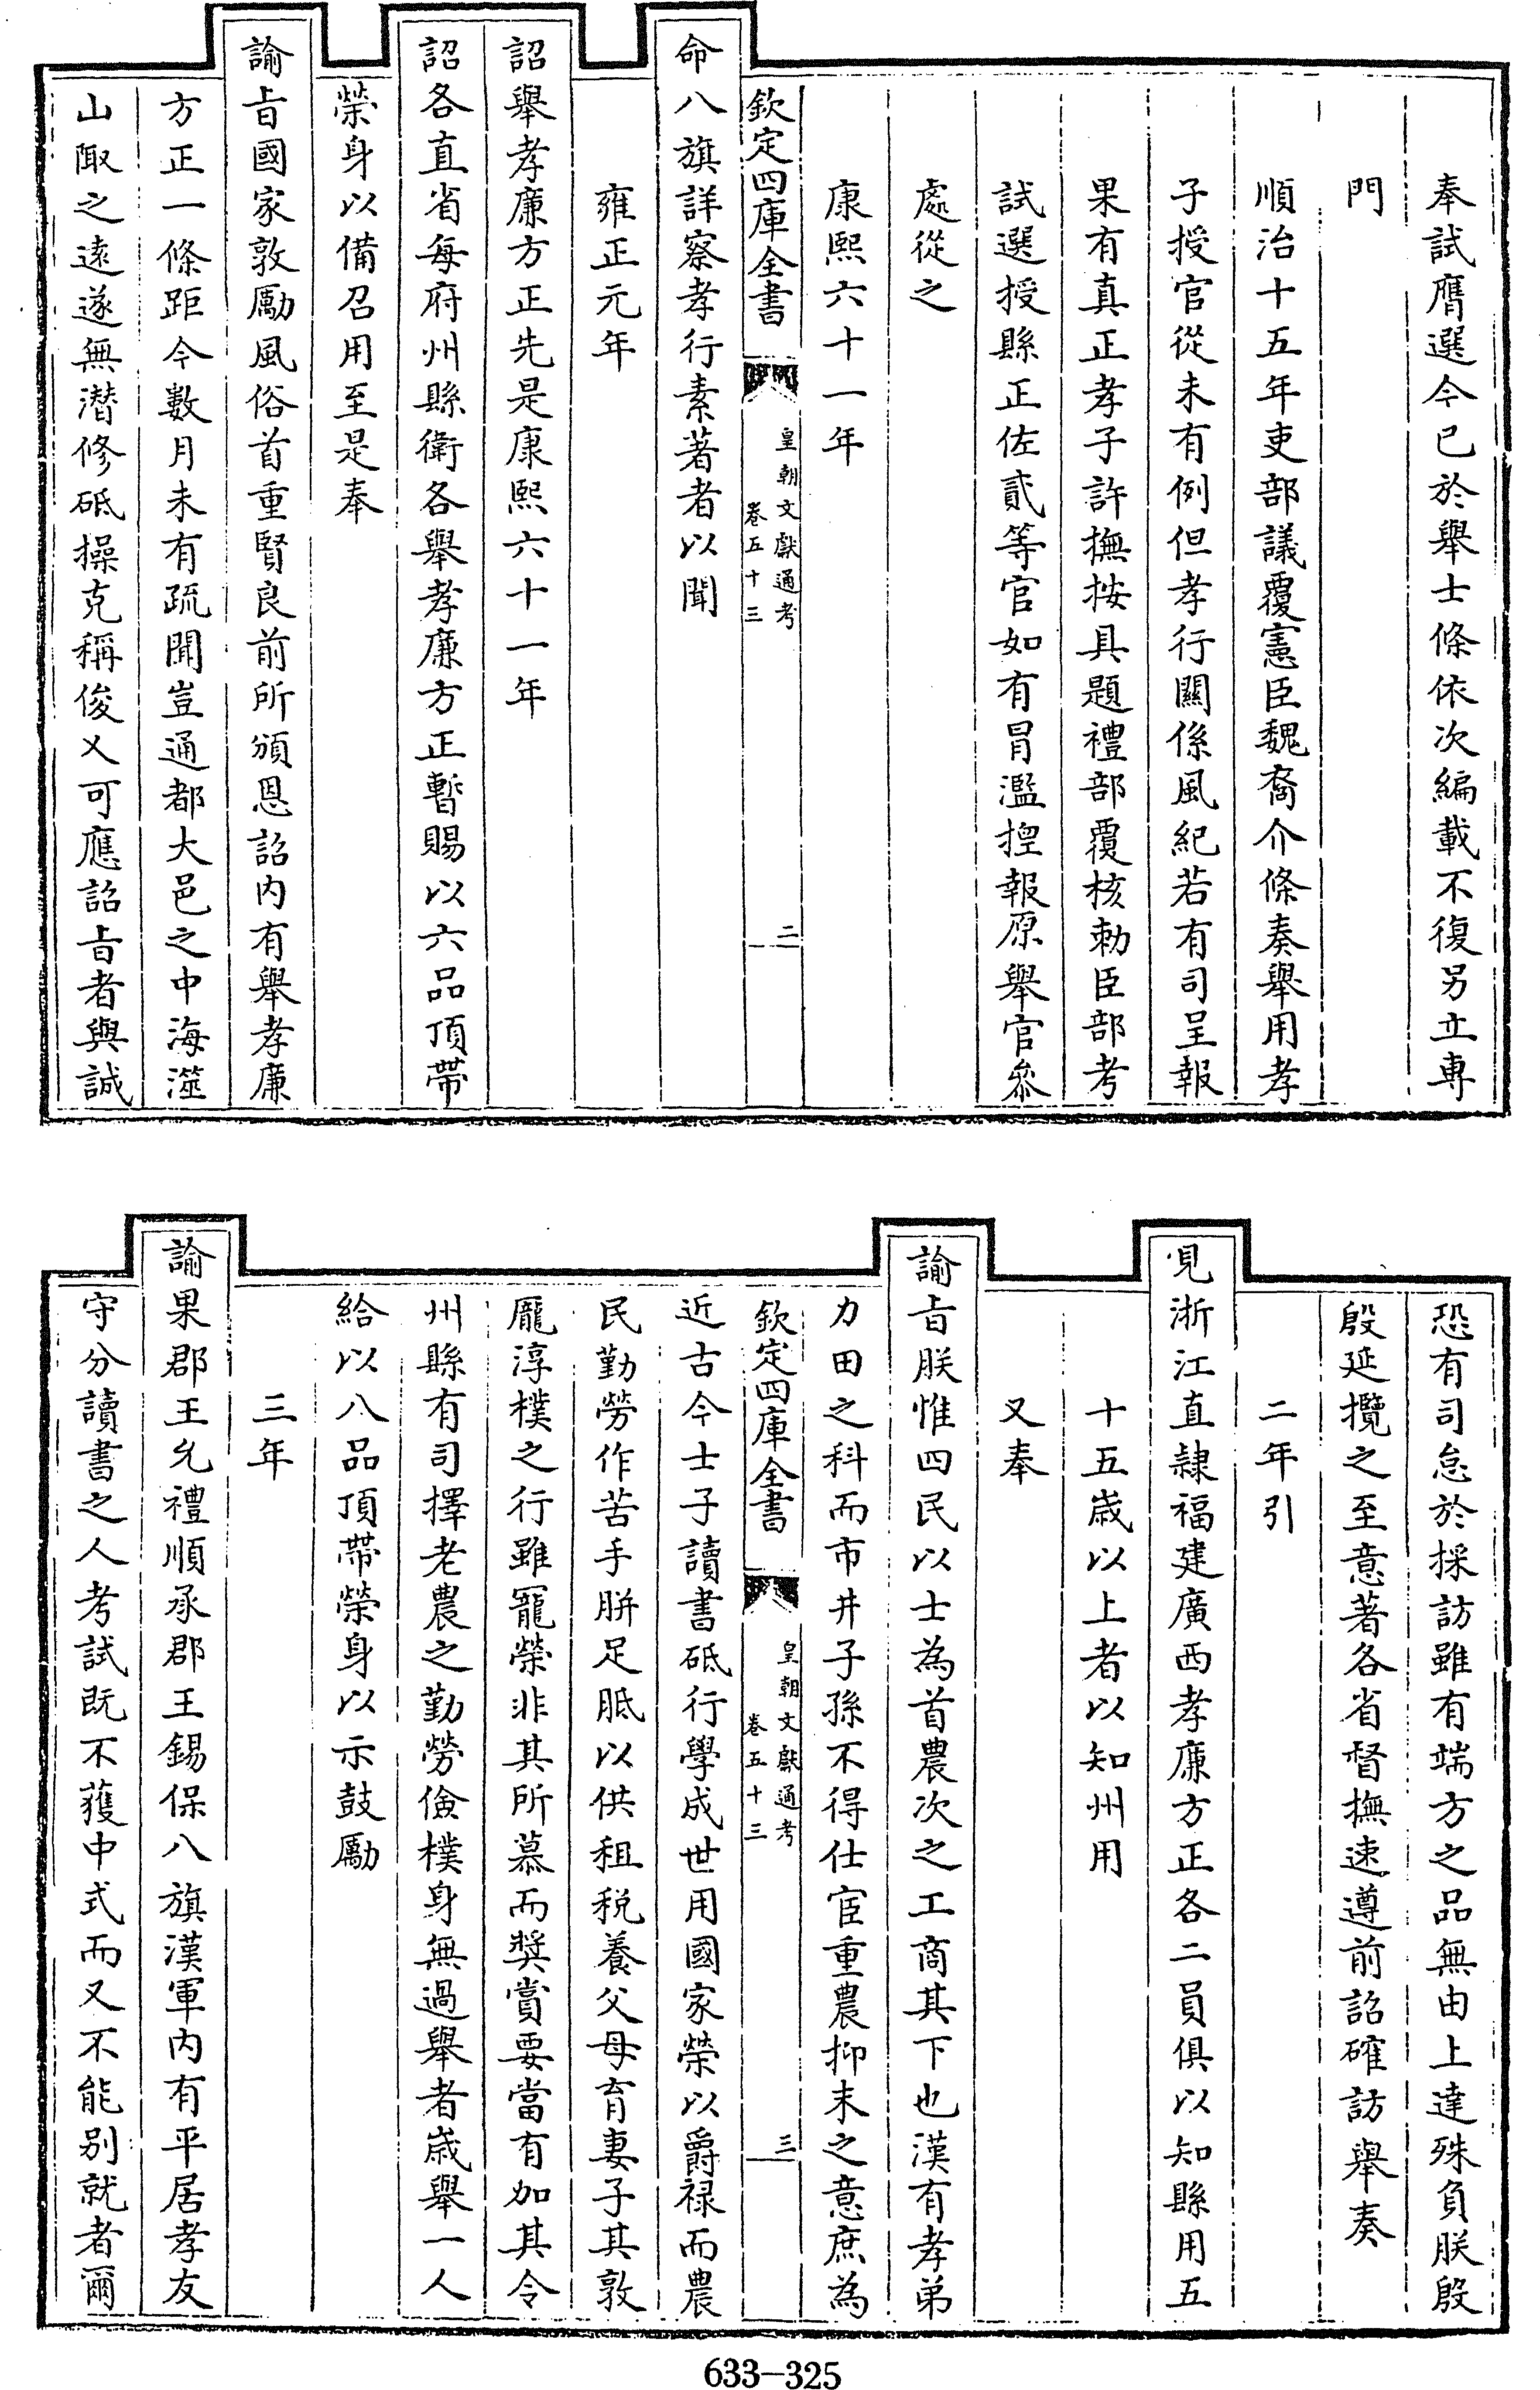 奉試膺選今已於舉士條依次編載不復另立專
門
順治十五年吏部議覆憲臣魏裔介條奏舉用孝
子授官從未有例但孝行關係風紀若有司呈報
果有真正孝子許撫按具題禮部覆核勅臣部考
試選授縣正佐貳等官如有冒濫揑報原舉官叅
處從之
康熙六十一年
欽定四庫全書
皇朝文獻通考
卷五十三
二
命八旗詳察孝行素著者以聞
雍正元年
詔舉孝廉方正先是康熙六十一年
詔各直省每府州縣衛各舉孝廉方正暫賜以六品頂帶
榮身以備召用至是奉
諭㫖國家敦勵風俗首重賢良前所頒恩詔内有舉孝廉
方正一條距今數月未有疏聞豈通都大邑之中海澨
山陬之遠遂無潛修砥操克稱俊乂可應詔㫖者與誠
恐有司怠於採訪雖有端方之品無由上達殊負朕殷
殷延攬之至意著各省督撫速遵前詔確訪舉奏
二年引
見浙江直隷福建廣西孝廉方正各二員俱以知縣用五
十五歲以上者以知州用
又奉
諭㫖朕惟四民以士為首農次之工商其下也漢有孝弟
力田之科而市井子孫不得仕宦重農抑末之意庶為
欽定四庫全書
皇朝文獻通考
卷五十三
三
近古今士子讀書砥行學成世用國家榮以爵禄而農
民勤勞作苦手胼足胝以供租税養父母育妻子其敦
龐淳樸之行雖寵榮非其所慕而奬賞要當有加其令
州縣有司擇老農之勤勞儉樸身無過舉者歲舉一人
給以八品頂帶榮身以示鼓勵
三年
諭果郡王允禮順承郡王錫保八旗漢軍内有平居孝友
守分讀書之人考試既不獲中式而又不能别就者爾
633-325